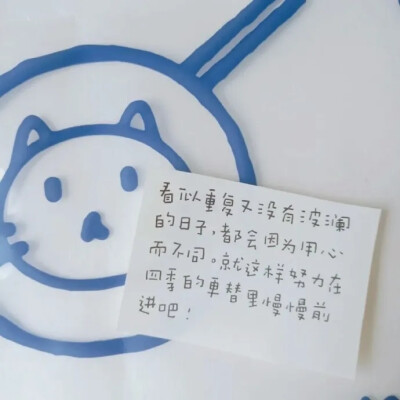 看似重复又没有波澜
的日子,都会因为用心
而不同。就这样努力在
四季的更替里慢慢前
进吧!